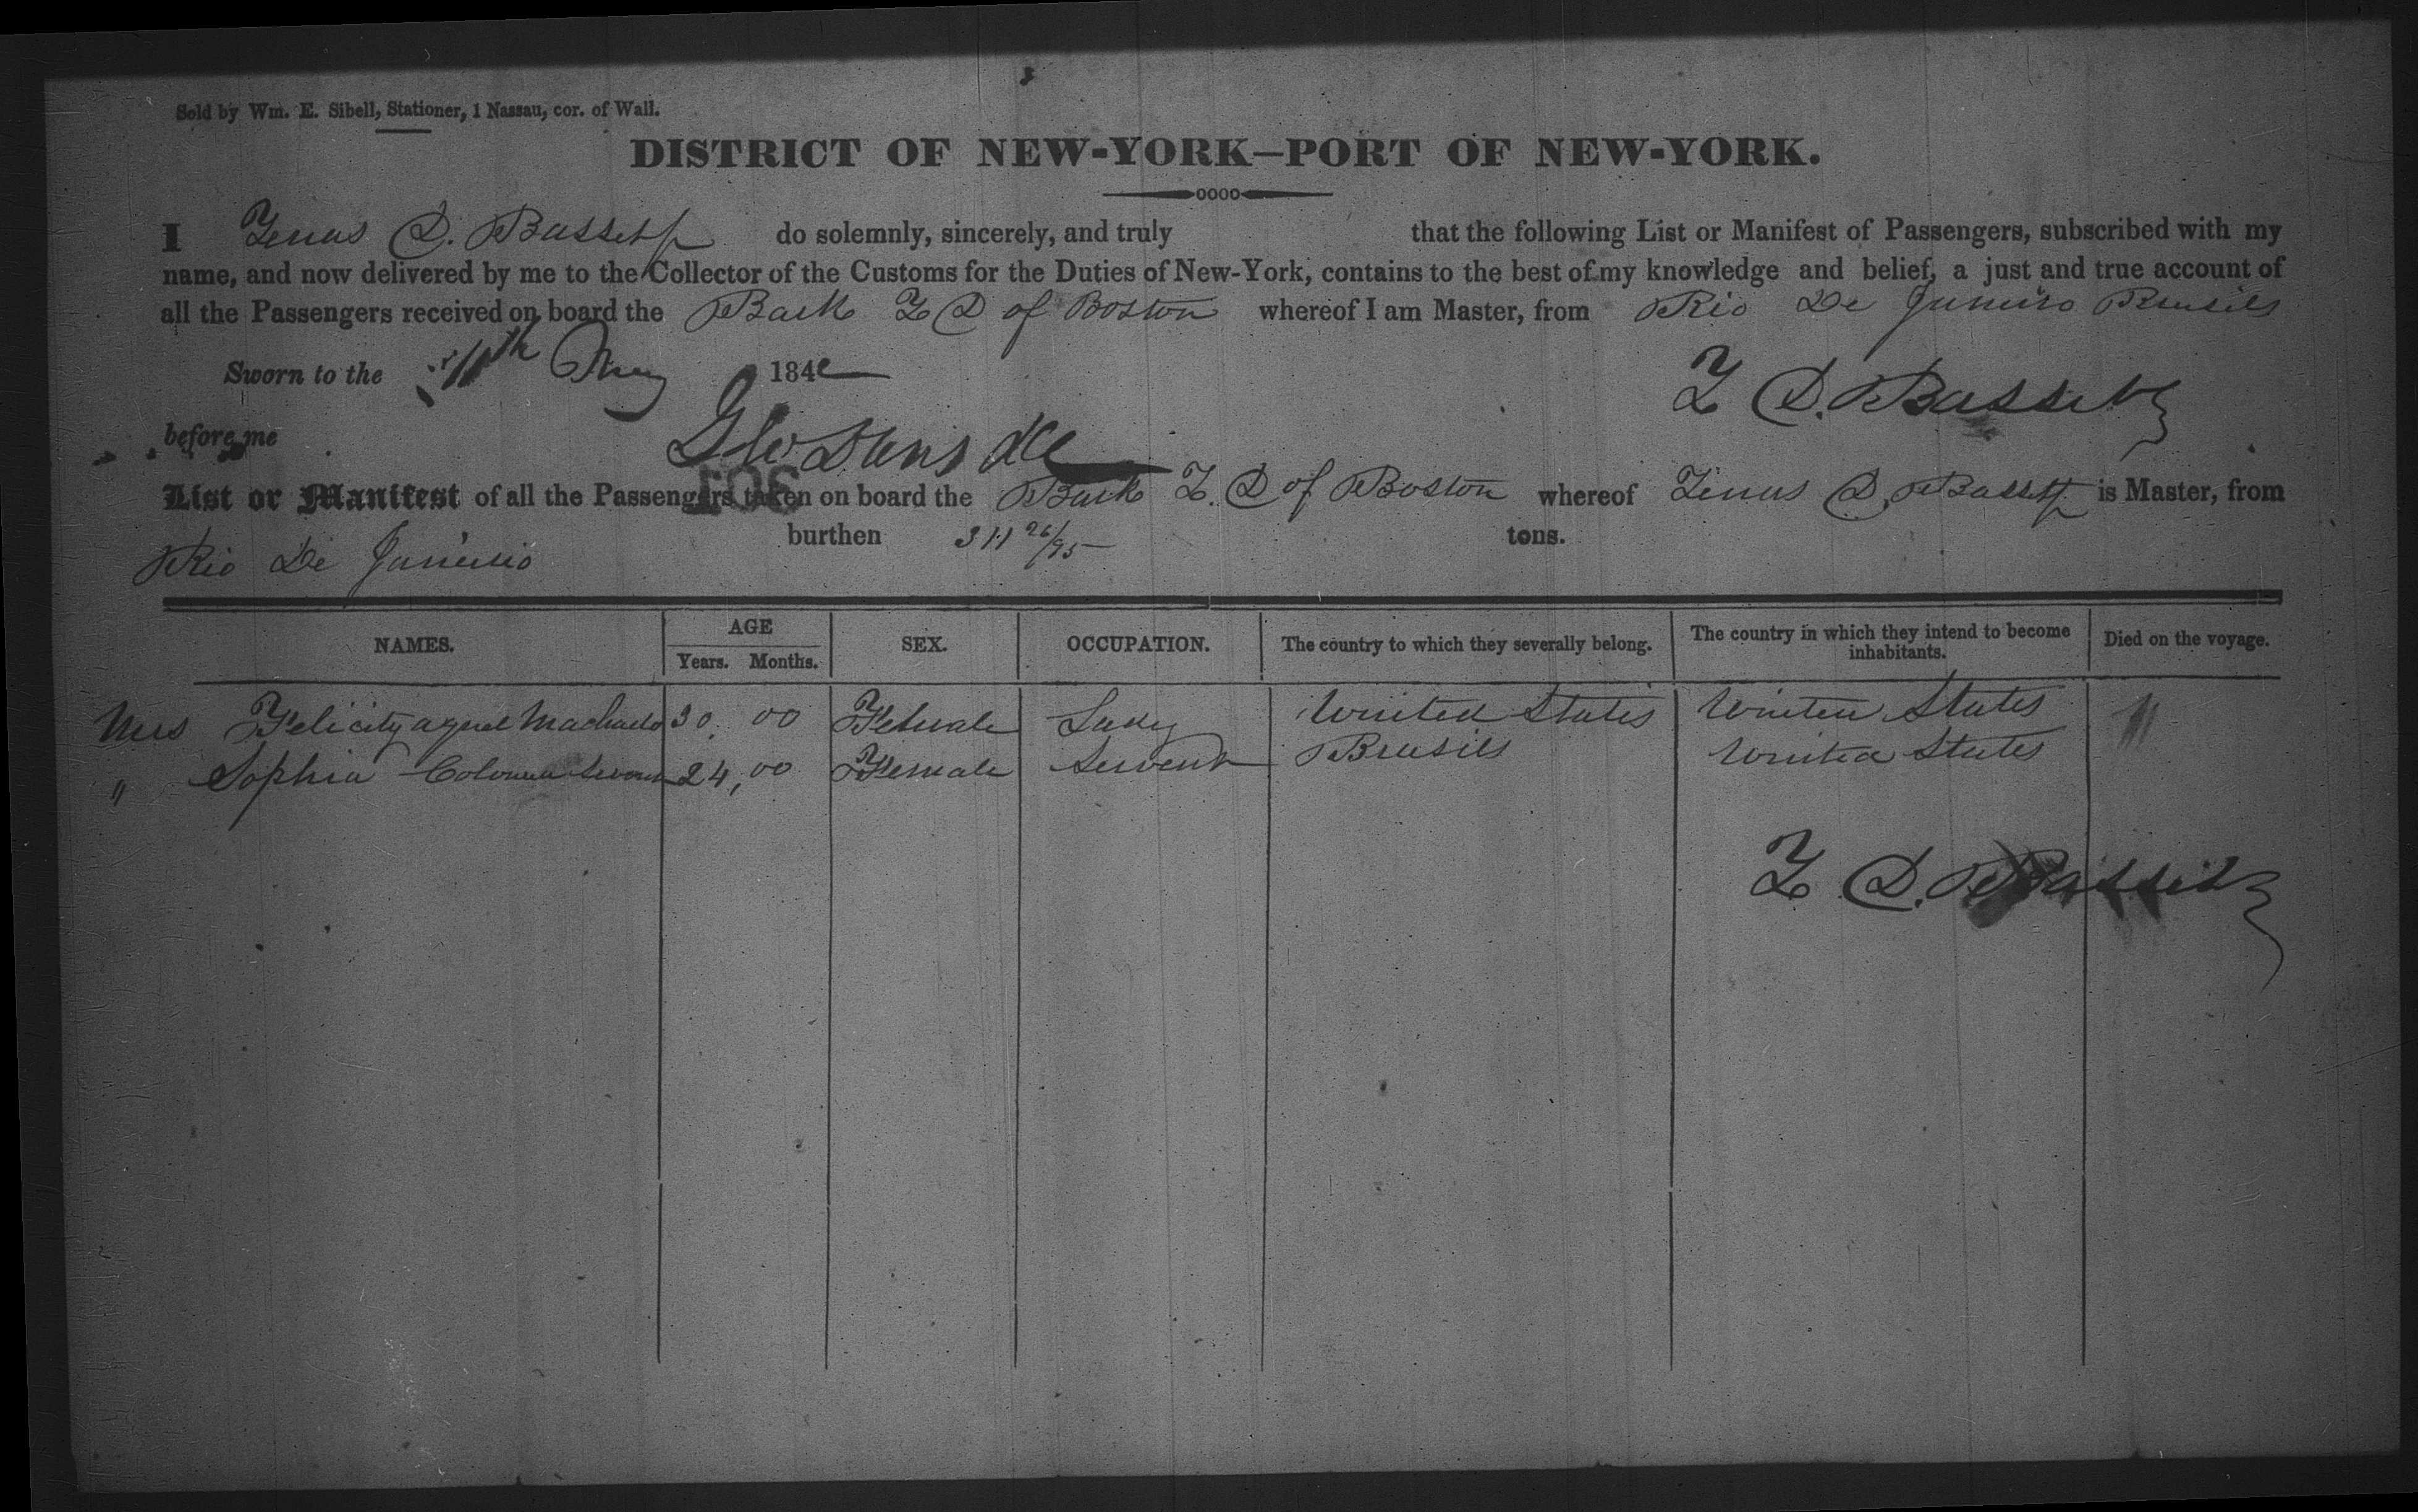 Sold by Wm. E. Sibell, Stationer, 1 Nassau, cor. of Wall.
DISTRICT OF NEW-YORK—PORT OF NEW-YORK.
I Zenas D. Bassett do solemnly, sincerely, and truly that the following List or Manifest of Passengers, subscribed with my
name, and now delivered by me to the Collector of the Customs for the Duties of New-York, contains to the best of my knowledge and belief, a just and true account of
all the Passengers received on board the Bark Z D of Boston whereof I am Master, from Rio De Janeiro Brasils
Sworn to the 11th May 184
Z D. Bassett
before me
List or Manifest of all the Passengers taken on board the Bark Z. D of Boston whereof Zenas D. Bassett is Master, from
Rio De Janeiro burthen 311 26/95 tons.
NAMES. AGE Years. Months. SEX. OCCUPATION. The country to which they severally belong. The country in which they intend to become inhabitants. Died on the voyage.
Mrs Felicity Machado 30. 00 Female Lady United States United States
" Sophia 24, 00 Female Servent Brasils United States
Z D. Bassett